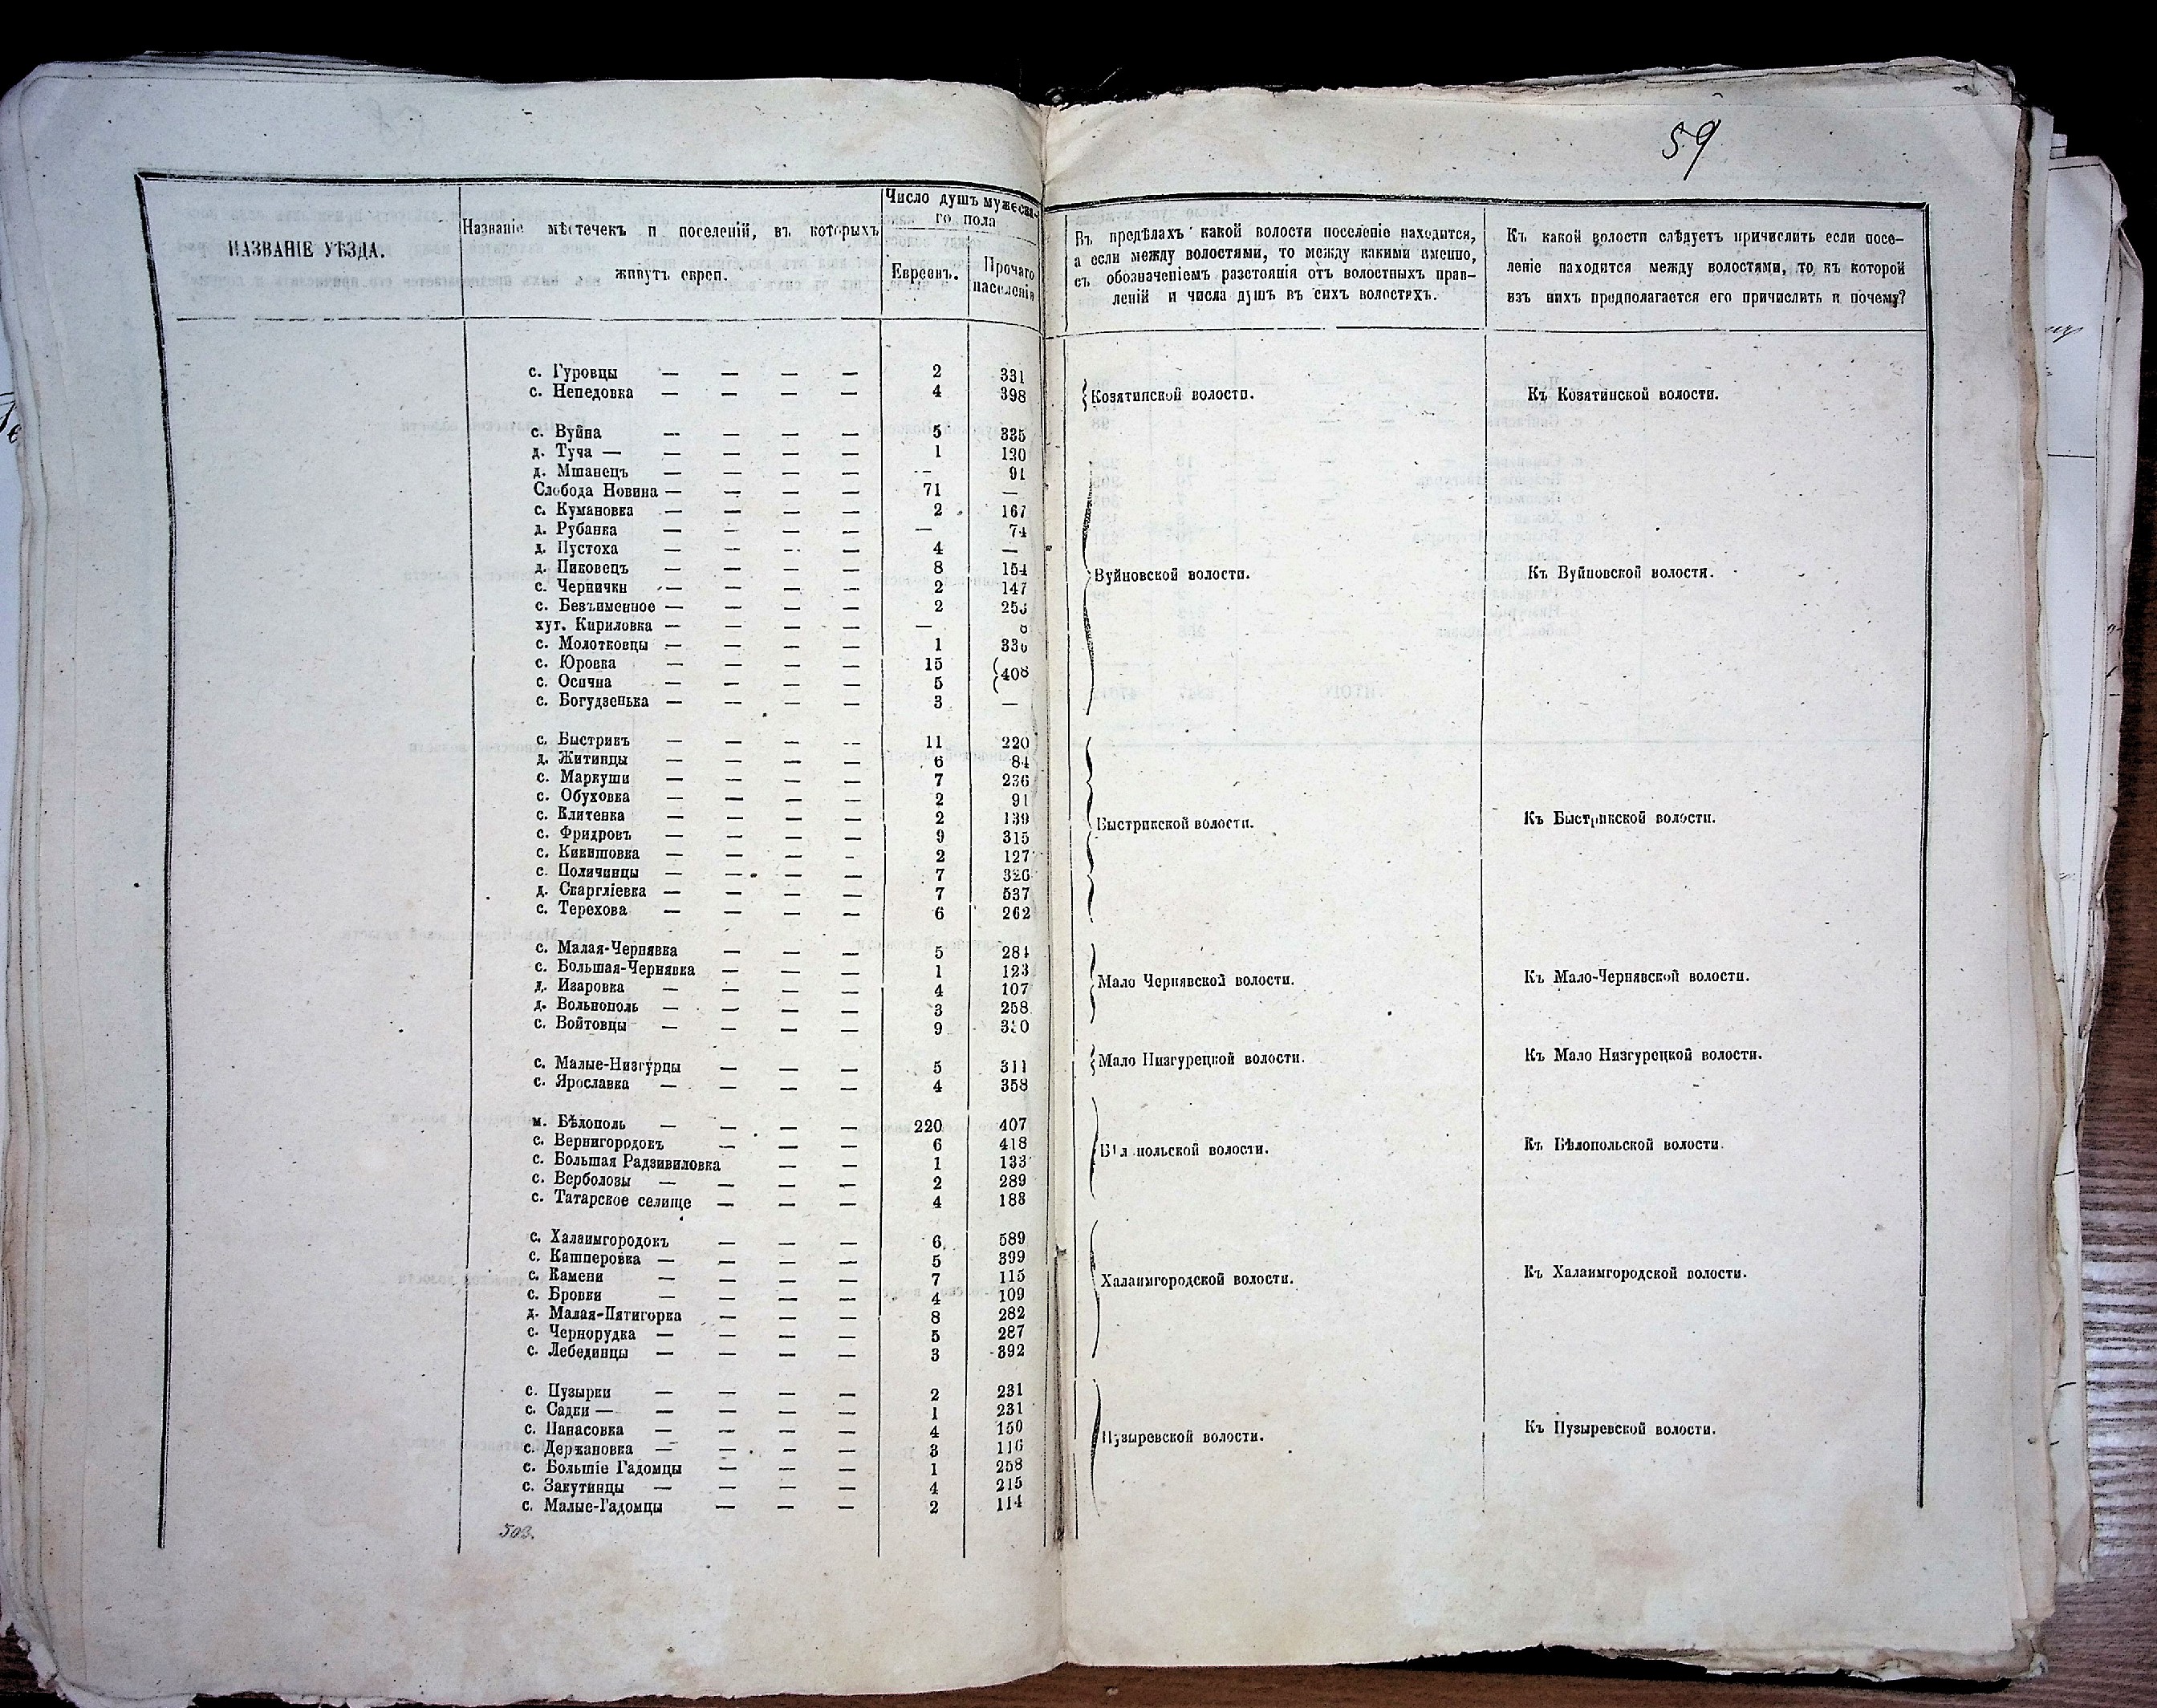 59
НАЗВАНІЕ УѢЗДА.
Названіе мѣстечекъ и поселеній, въ которыхъ
живутъ евреи.
Число душъ мужеска-
го пола
Евреевъ.
Прочаго
населенія
Въ предѣлахъ какой волости поселеніе находится,
а если между волостями, то между какими именно,
съ обозначеніемъ разстоянія отъ волостныхъ прав-
леній и числа душъ въ сихъ волостяхъ.
Къ какой волости слѣдуетъ причислить если посе-
леніе находится между волостями, то къ которой
изъ нихъ предполагается его причислить и почему?
с. Гуровцы — — — — 2 331
с. Непедовка — — — — 4 398
Козятинской волости. Къ Козятинской волости.
с. Вуйна — — — — 5 335
д. Туча — — — — — 1 130
д. Мшанецъ — — — — — 91
Слобода Новина — — — — 71 —
с. Кумановка — — — — 2 167
д. Рубанка — — — — — 74
д. Пустоха — — — — 4 —
д. Пиковецъ — — — — 8 154
Вуйновской волости. Къ Вуйновской волости.
с. Чернички — — — — 2 147
с. Безъименное — — — — 2
хут. Кириловка — — — — —
с. Молотковцы — — — — 1
с. Юровка — — — — 15
408
с. Осична — — — — 5
с. Богудзенька — — — — 3 —
с. Быстрикъ — — — — 11 220
д. Житинцы — — — — 6 84
с. Маркуши — — — — 7 236
с. Обуховка — — — — 2 91
с. Клитенка — — — — 2 139
Быстрикской волости. Къ Быстрикской волости.
с. Фридровъ — — — — 9 315
с. Кикишовка — — — - 2 127
с. Поличинцы — — — — 7 326
д. Скаргліевка — — — — 7 537
с. Терехова — — — — 6 262
с. Малая-Чернявка — — — 5 284
с. Большая-Чернявка — — — 1 123
Мало Чернявской волости. Къ Мало-Чернявской волости.
д. Изаровка — — — — 4 107
д. Вольнополь — — — — 3 258
с. Войтовцы — — — — 9
с. Малые-Низгурцы — — — 5 311
Мало Низгурецкой волости. Къ Мало Низгурецкой волости.
с. Ярославка — — — — 4 358
м. Бѣлополь — — — — 220 407
с. Вернигородокъ — — — 6 418
Бѣлопольской волости. Къ Бѣлопольской волости.
с. Большая Радзивиловка — — 1 133
с. Верболозы — — — — 2 289
с. Татарское селище — — — 4 188
с. Халаимгородокъ — — — 6 589
с. Кашперовка — — — — 5 399
с. Камени — — — — 7 115
Халаимгородской волости. Къ Халаимгородской волости.
с. Бровки — — — — 4 109
д. Малая-Пятигорка — — — 8 282
с. Чернорудка — — — — 5 287
с. Лебединцы — — — — 3 392
с. Пузырки — — — — 2 231
с. Садки — — — — — 1 231
с. Панасовка — — — — 4 150
Пузыревской волости. Къ Пузыревской волости.
с. Держановка — — — — 3 116
с. Большіе Гадомцы — — — 1 258
с. Закутинцы — — — — 4 215
с. Малые-Гадомцы — — — 2 114
503.